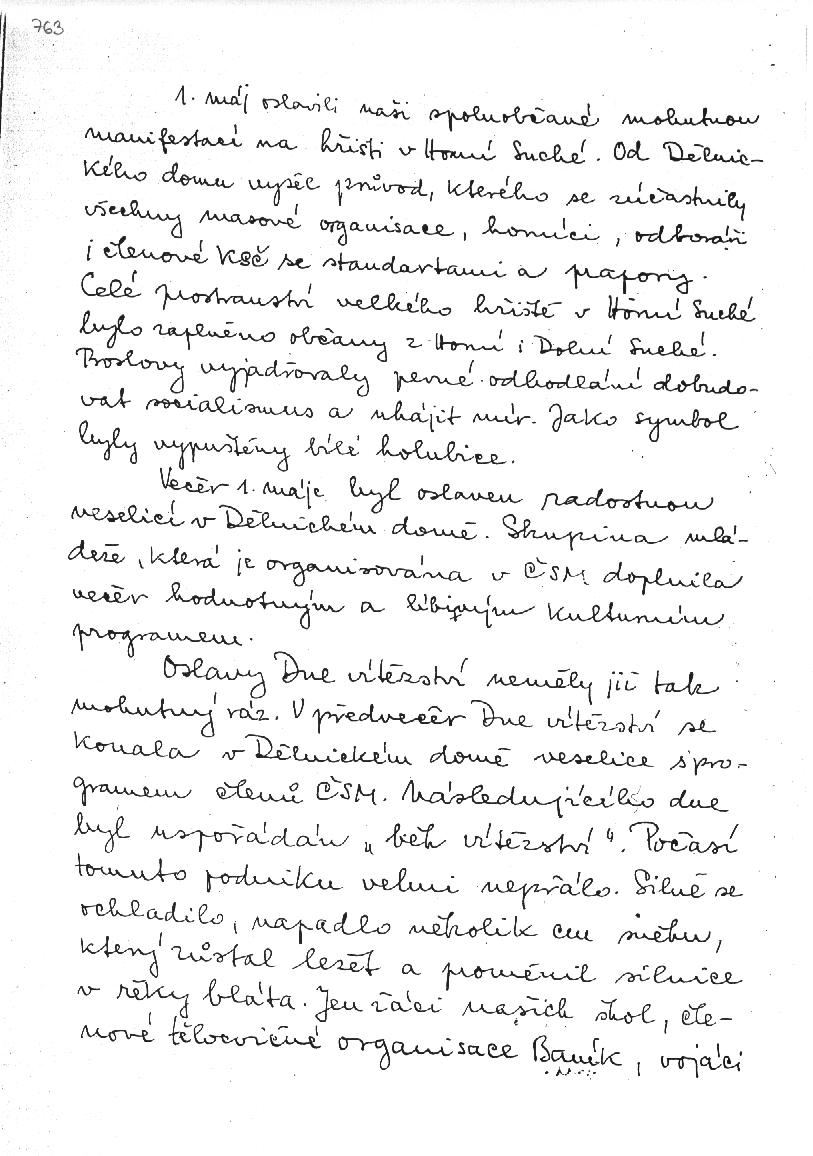 763
1. máj oslavili naši spoluobčané mohutnou
manifestací na hřišti v Horní Suché. Od Dělnic-
kého domu vyšel průvod, kterého se zúčastnily
všechny masové organisace, horníci, odboráři
i členové KSČ se standartami a prapory.
Celé prostranství velkého hřiště v Horní Suché
bylo zaplněno občany z Horní i Dolní Suché.
Proslovy vyjadřovaly pevné odhodlání dobudo-
vat socialismus a uhájit mír. Jako symbol
byly vypuštěny bílé holubice.
Večer 1. máje byl oslaven radostnou
veselicí v Dělnickém domě. Skupina mlá-
deže, která je organisována v ČSM doplnila
večer hodnotným a líbivým kulturním
programem.
Oslavy Dne vítězství neměly již tak
mohutný ráz. V předvečer Dne vítězství se
konala v Dělnickém domě veselice s pro-
gramem členů ČSM. Následujícího dne
byl uspořádán „běh vítězství". Počasí
tomuto podniku velmi nepřálo. Silně se
ochladilo, napadlo několik cm sněhu,
který zůstal ležet a proměnil silnice
v řeky bláta. Jen žáci našich škol, čle-
nové tělocvičné organisace Baník, vojáci